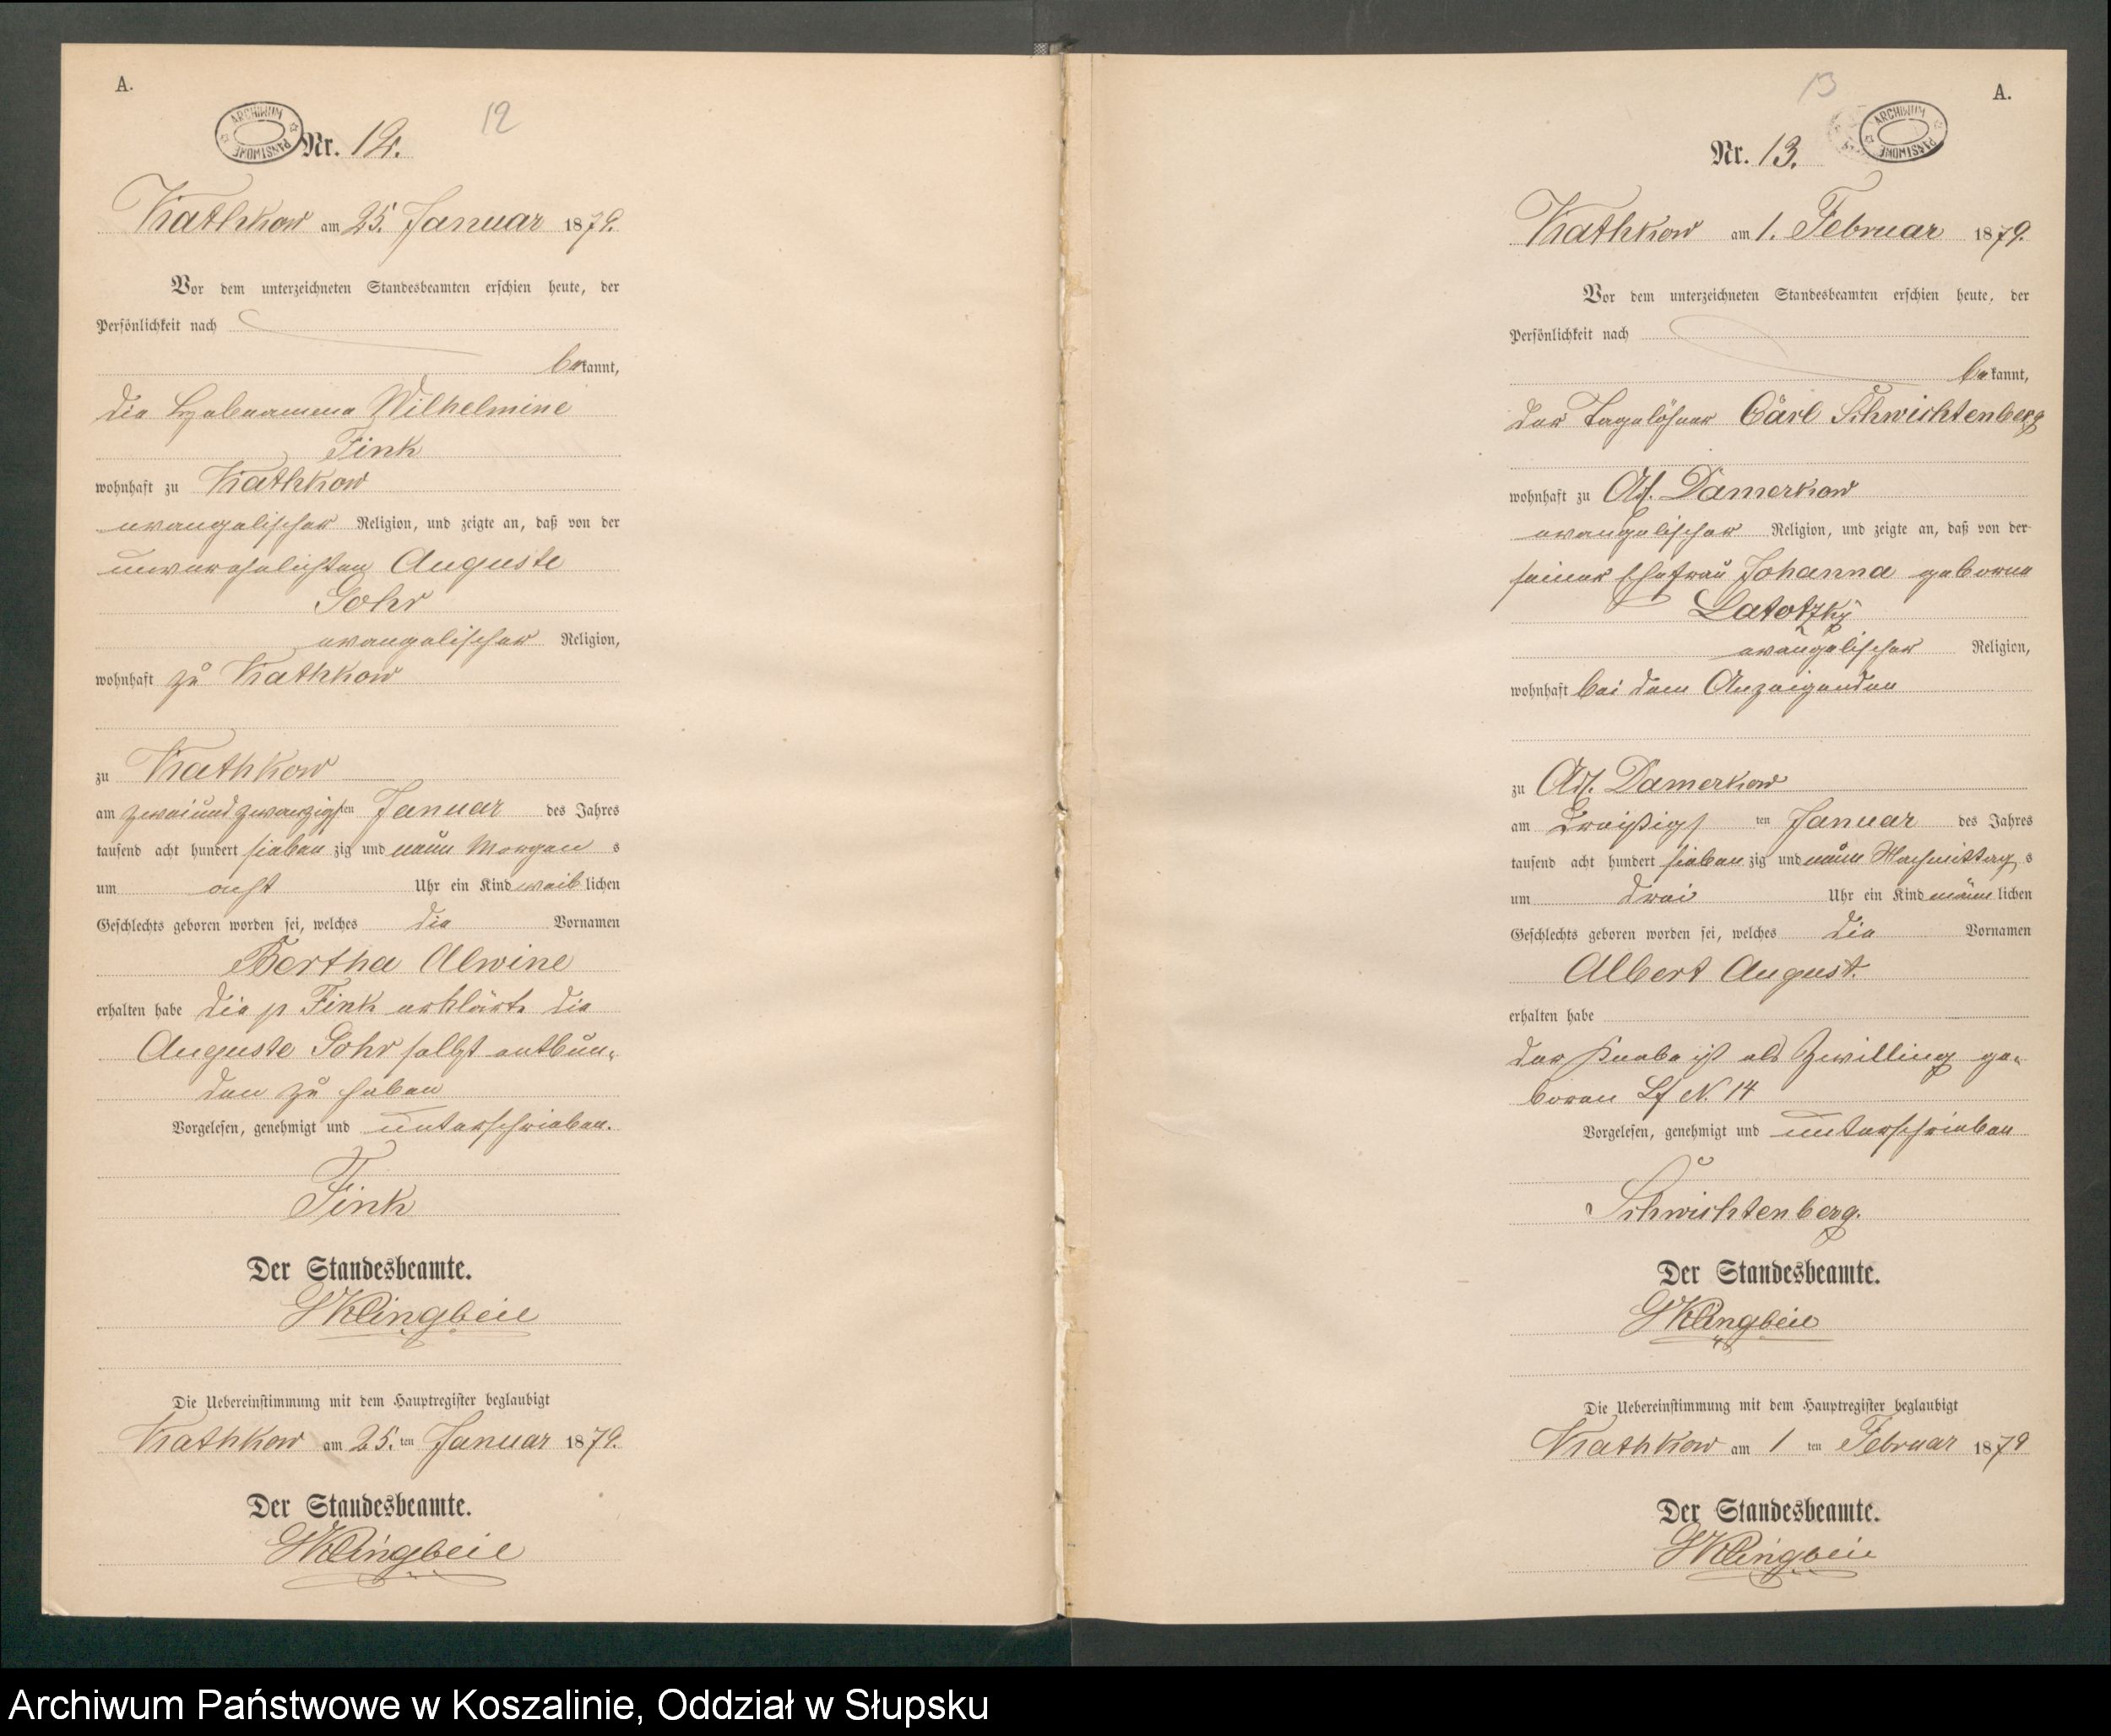 A.
ARCHIWUM PAŃSTWOWE
Nr. 12.
12
Kathkow am 25. Januar 1879.
Vor dem unterzeichneten Standesbeamten erschien heute, der
Persönlichkeit nach
bekannt,
die Hebeamme Wilhelmine
Fink
wohnhaft zu Kathkow
evangelischer Religion, und zeigte an, daß von der
unverehelichten Auguste
Gohr
evangelischer Religion,
wohnhaft zu Kathkow
zu Kathkow
am zweiundzwanzigsten Januar des Jahres
tausend acht hundert siebenzig und neun Morgens
um acht Uhr ein Kind weiblichen
Geschlechts geboren worden sei, welches die Vornamen
Bertha Alwine
erhalten habe die p Fink erklärte die
Auguste Gohr selbst entbun-
den zu haben
Vorgelesen, genehmigt und unterschrieben.
Fink
Der Standesbeamte.
Klingbeil
Die Uebereinstimmung mit dem Hauptregister beglaubigt
Kathkow am 25.ten Januar 1879.
Der Standesbeamte.
Klingbeil
13
A.
ARCHIWUM PAŃSTWOWE
Nr. 13.
Kathkow am 1. Februar 1879.
Vor dem unterzeichneten Standesbeamten erschien heute, der
Persönlichkeit nach
bekannt,
der Tagelöhner Carl Schwichtenberg
wohnhaft zu Adl. Damerkow
evangelischer Religion, und zeigte an, daß von der
seiner Ehefrau Johanna geborne
Latotzky
evangelischer Religion,
wohnhaft bei dem Anzeigenden
zu Adl. Damerkow
am dreißigsten Januar des Jahres
tausend acht hundert siebenzig und neun Nachmittags
um drei Uhr ein Kind männlichen
Geschlechts geboren worden sei, welches die Vornamen
Albert August.
erhalten habe
der Knabe ist als Zwilling ge-
boren Lf N. 14
Vorgelesen, genehmigt und unterschrieben
Schwichtenberg.
Der Standesbeamte.
Klingbeil
Die Uebereinstimmung mit dem Hauptregister beglaubigt
Kathkow am 1 ten Februar 1879
Der Standesbeamte.
Klingbeil
Archiwum Państwowe w Koszalinie, Oddział w Słupsku